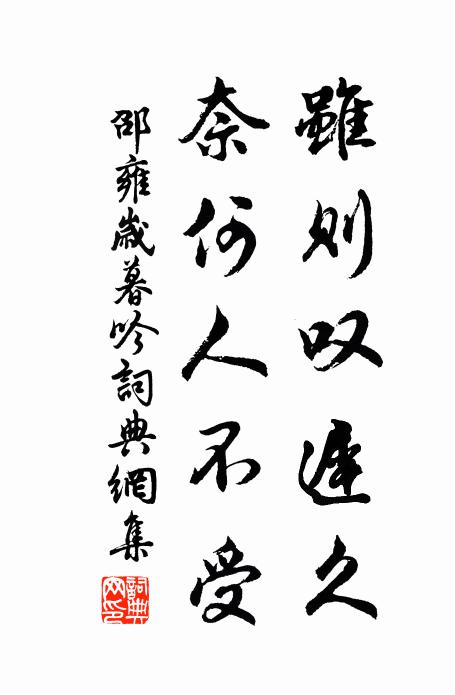 雖則叹遲久
奈何人不受
邵雍歲暮吟詞典網集
詞典网印